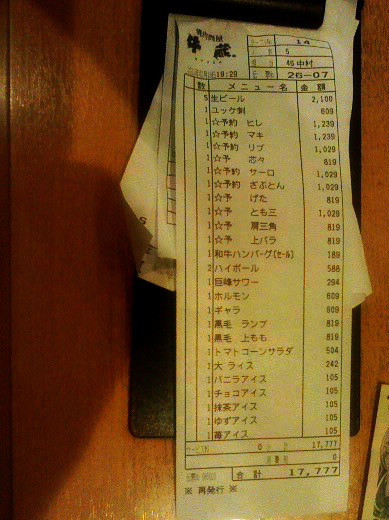 焼肉問屋
牛蔵
テーブル 14
客 5
担当 46 中村
19:29 伝票 26-07
数 メニュー名 金額
5 生ビール 2,100
1 ユッケ刺 609
1 ☆予約 ヒレ 1,239
1 ☆予約 マキ 1,239
1 ☆予約 リブ 1,029
1 ☆予 芯々 819
1 ☆予約 サーロ 1,029
1 ☆予約 ざぶとん 1,029
1 ☆予 げた 819
1 ☆予 とも三 1,029
1 ☆予 肩三角 819
1 ☆予 上バラ 819
1 和牛ハンバーグ(セール) 189
2 ハイボール 588
1 巨峰サワー 294
1 ホルモン 609
1 ギャラ 609
1 黒毛 ランプ 819
1 黒毛 上もも 819
1 トマトコーンサラダ 504
1 大 ライス 242
1 バニラアイス 105
1 チョコアイス 105
1 抹茶アイス 105
1 ゆずアイス 105
1 苺アイス 105
サービス料 0 小計 17,777
0
合計 17,777
※ 再発行 ※